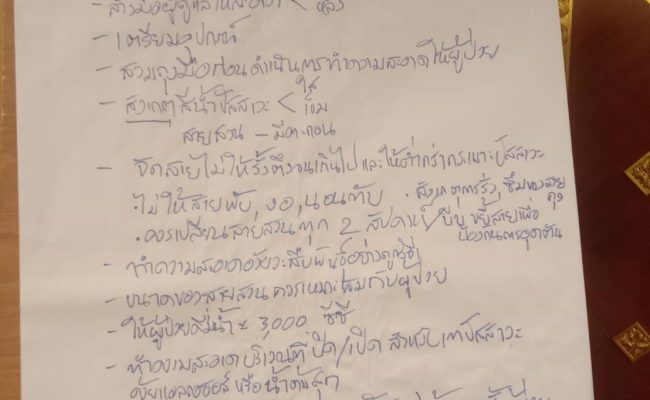 - ล้างมือผู้ดูแลให้สะอาด < หลัง
- เตรียมอุปกรณ์
- สวมถุงมือก่อนดำเนินการทำความสะอาดให้ผู้ป่วย
- สังเกตุสีน้ำปัสสาวะ < ใส
เข้ม
สายสวน - มีตะกอน
- จัดสายไม่ให้รั้งตึงจนเกินไป และให้ต่ำกว่ากระเพาะปัสสาวะ
. ไม่ให้สายพับ, งอ, นอนทับ . สังเกตุการรั่ว, ซึมของสาย
ถุง
. ควรเปลี่ยนสายสวนทุก 2 สัปดาห์ / บีบขยี้สายเพื่อ
ป้องกันการอุดตัน
- ทำความสะอาดอวัยวะสืบพันธุ์อย่างถูกวิธี
- ขนาดของสายสวน ควรเหมาะสมกับผู้ป่วย
- ให้ผู้ป่วยดื่มน้ำ ≈ 3,000 ซีซี
- ทำความสะอาด บริเวณที่ ปิด/เปิด สำหรับเทปัสสาวะ
ด้วยแอลกอฮอล์ หรือ น้ำต้มสุก